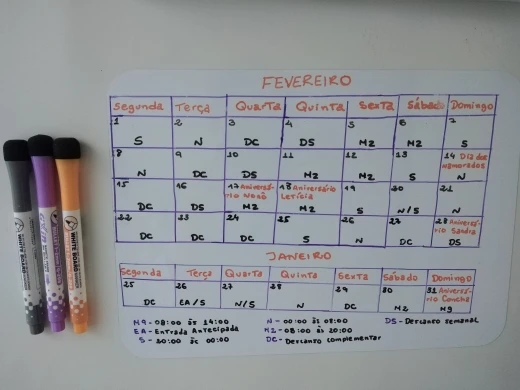 FEVEREIRO
Segunda Terça Quarta Quinta Sexta Sábado Domingo
1 2 3 4 5 6 7
S N DC DS M2 M2 S
8 9 10 11 12 13 14 Dia dos Namorados
N DC DS M2 M2 S N
15 16 17 Aniversário Nonô 18 Aniversário Letícia 19 20 21
DC DS M2 M2 S N/S N
22 23 24 25 26 27 28 Aniversário Sandra
DC DC DC S N DC DS
JANEIRO
Segunda Terça Quarta Quinta Sexta Sábado Domingo
25 26 27 28 29 30 31 Aniversário Concha
DC EA/S N/S N DC M2 M9
M9 - 08:00 às 14:00 N - 00:00 às 08:00 DS - Descanso semanal
EA - Entrada Antecipada M2 - 08:00 às 20:00
S - 20:00 às 00:00 DC - Descanso complementar
WHITE BOARD
WHITE BOARD